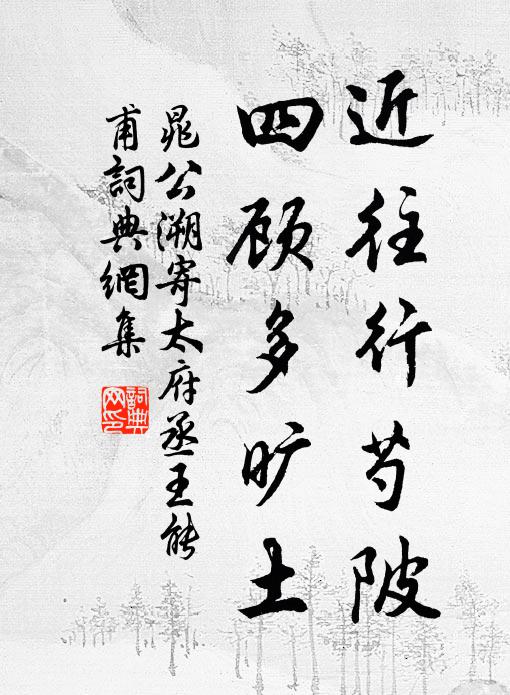 近往行芍陂
四顾多旷土
晁公溯寄太府丞王能
甫詞典網集
詞典网印